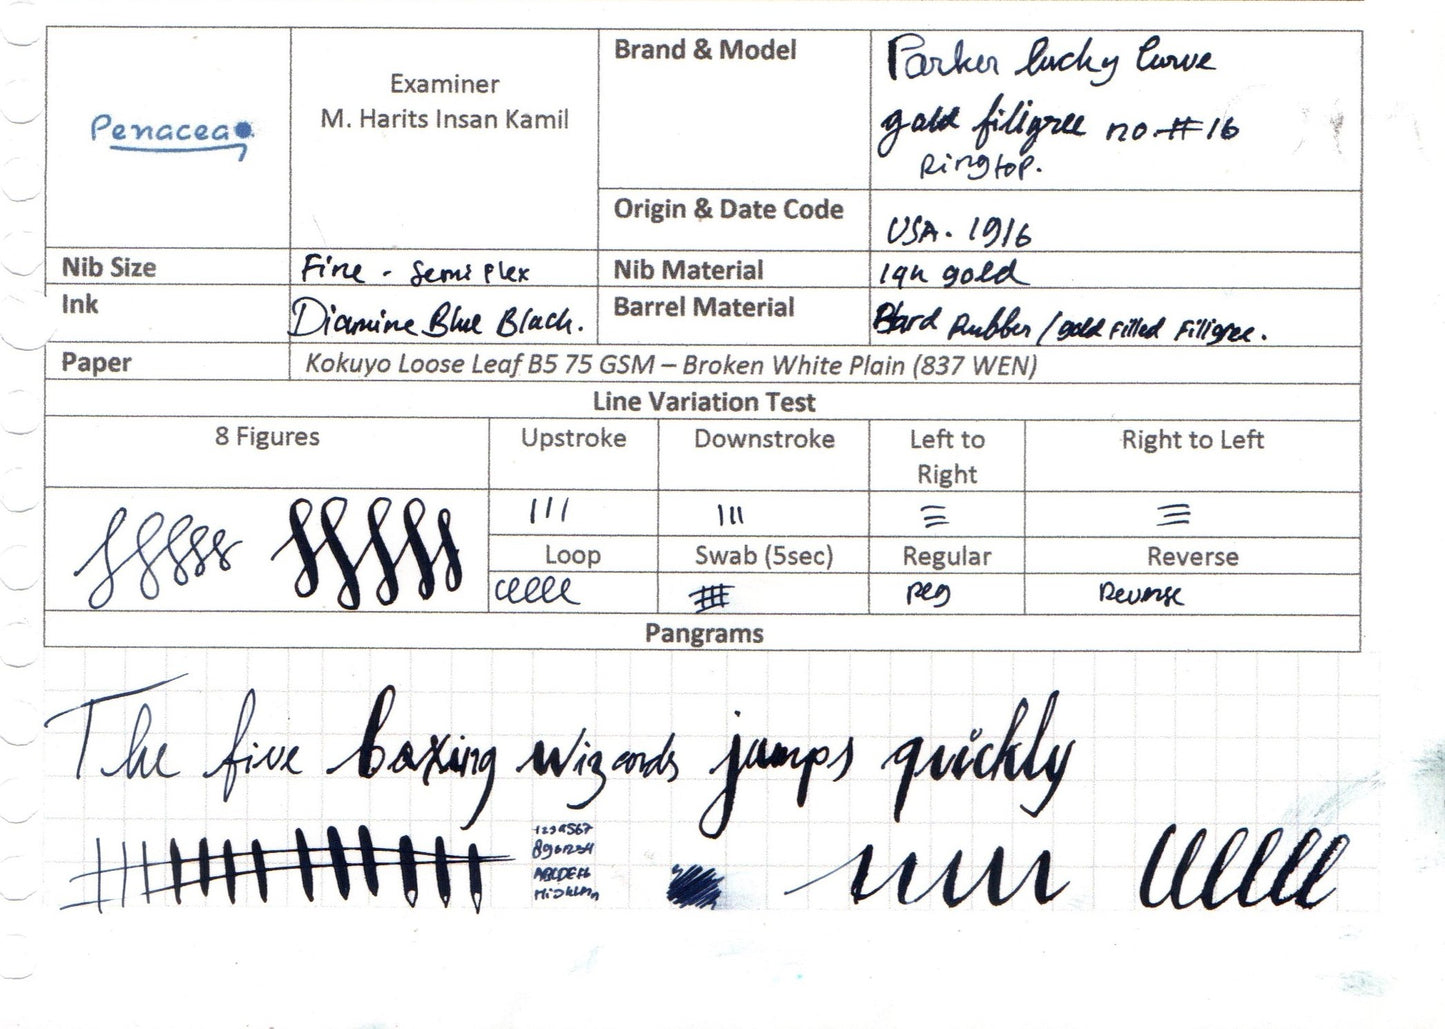 Penacea
Examiner
M. Harits Insan Kamil
Brand & Model
Parker lucky Curve
gold filigree no. #16
Ringtop.
Origin & Date Code
USA. 1916
Nib Size
Fine - Semi Flex
Nib Material
14k gold
Ink
Diamine Blue Black.
Barrel Material
Hard Rubber / gold Filled Filigree.
Paper
Kokuyo Loose Leaf B5 75 GSM – Broken White Plain (837 WEN)
Line Variation Test
8 Figures
Upstroke
Downstroke
Left to
Right
Right to Left
Loop
Swab (5sec)
Regular
Reverse
reg
Reverse
Pangrams
The five boxing wizards jumps quickly
1234567